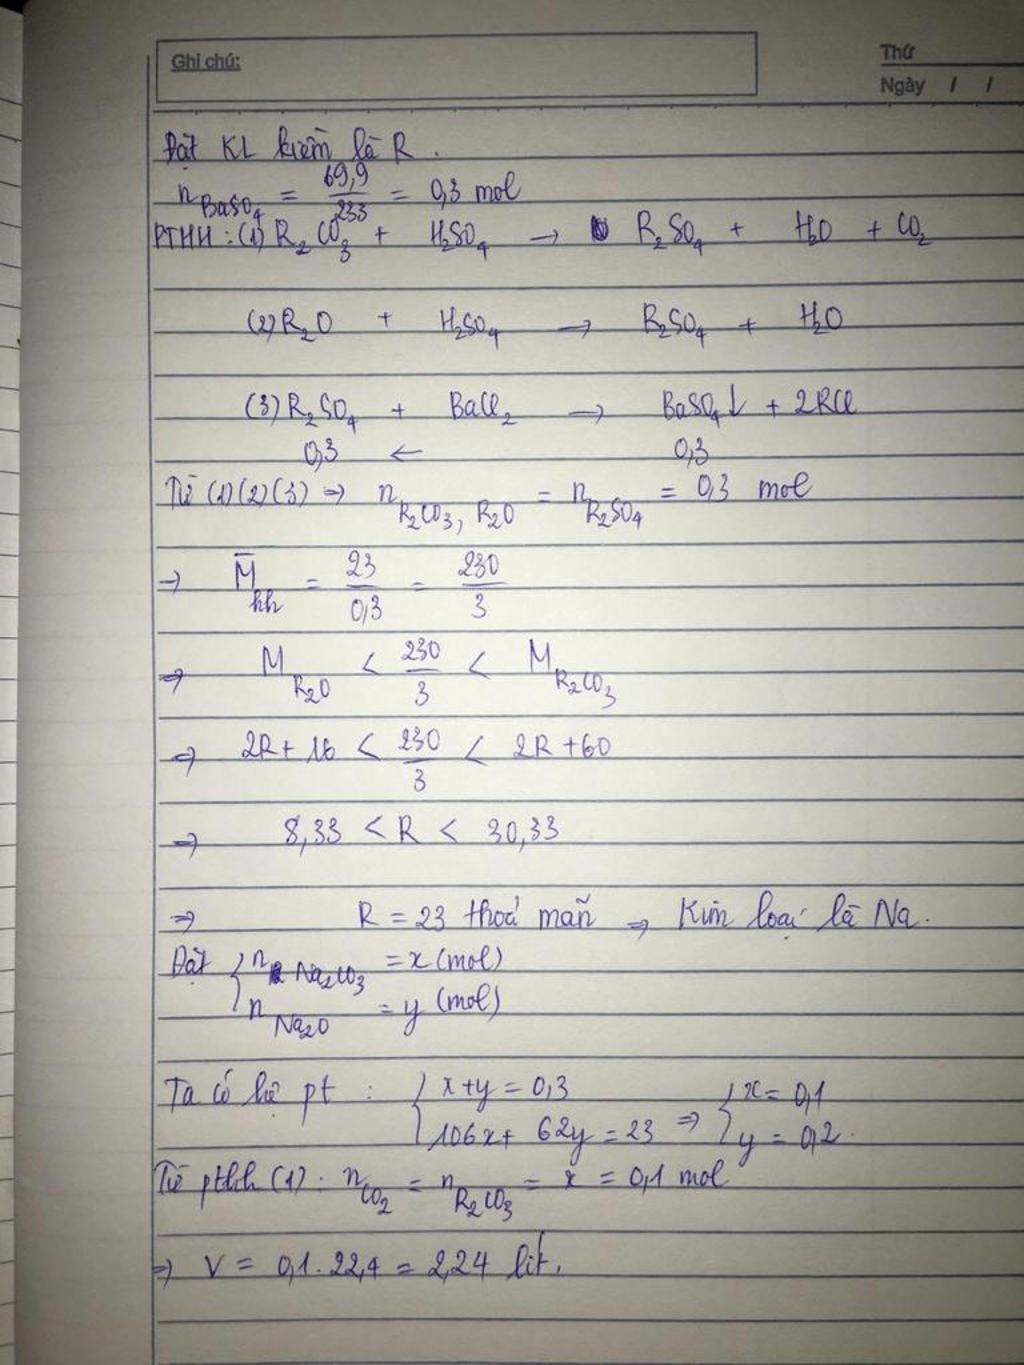 Ghi chú:
Thứ
Ngày / /
Đặt KL kiềm là R.
n BaSO₄ = 69,9/233 = 0,3 mol
PTHH: (1) R₂CO₃ + H₂SO₄ → R₂SO₄ + H₂O + CO₂
(2) R₂O + H₂SO₄ → R₂SO₄ + H₂O
(3) R₂SO₄ + BaCl₂ → BaSO₄↓ + 2RCl
0,3 ← 0,3
Từ (1)(2)(3) ⇒ n R₂CO₃, R₂O = n R₂SO₄ = 0,3 mol
⇒ M̄ hh = 23/0,3 = 230/3
⇒ M R₂O < 230/3 < M R₂CO₃
⇒ 2R + 16 < 230/3 < 2R + 60
⇒ 8,33 < R < 30,33
⇒ R = 23 thoả mãn ⇒ Kim loại là Na.
Đặt { n Na₂CO₃ = x (mol)
n Na₂O = y (mol)
Ta có hệ pt : { x + y = 0,3
106x + 62y = 23 ⇒ { x = 0,1
y = 0,2.
Từ pthh (1): n CO₂ = n R₂CO₃ = x = 0,1 mol
⇒ V = 0,1.22,4 = 2,24 lít.